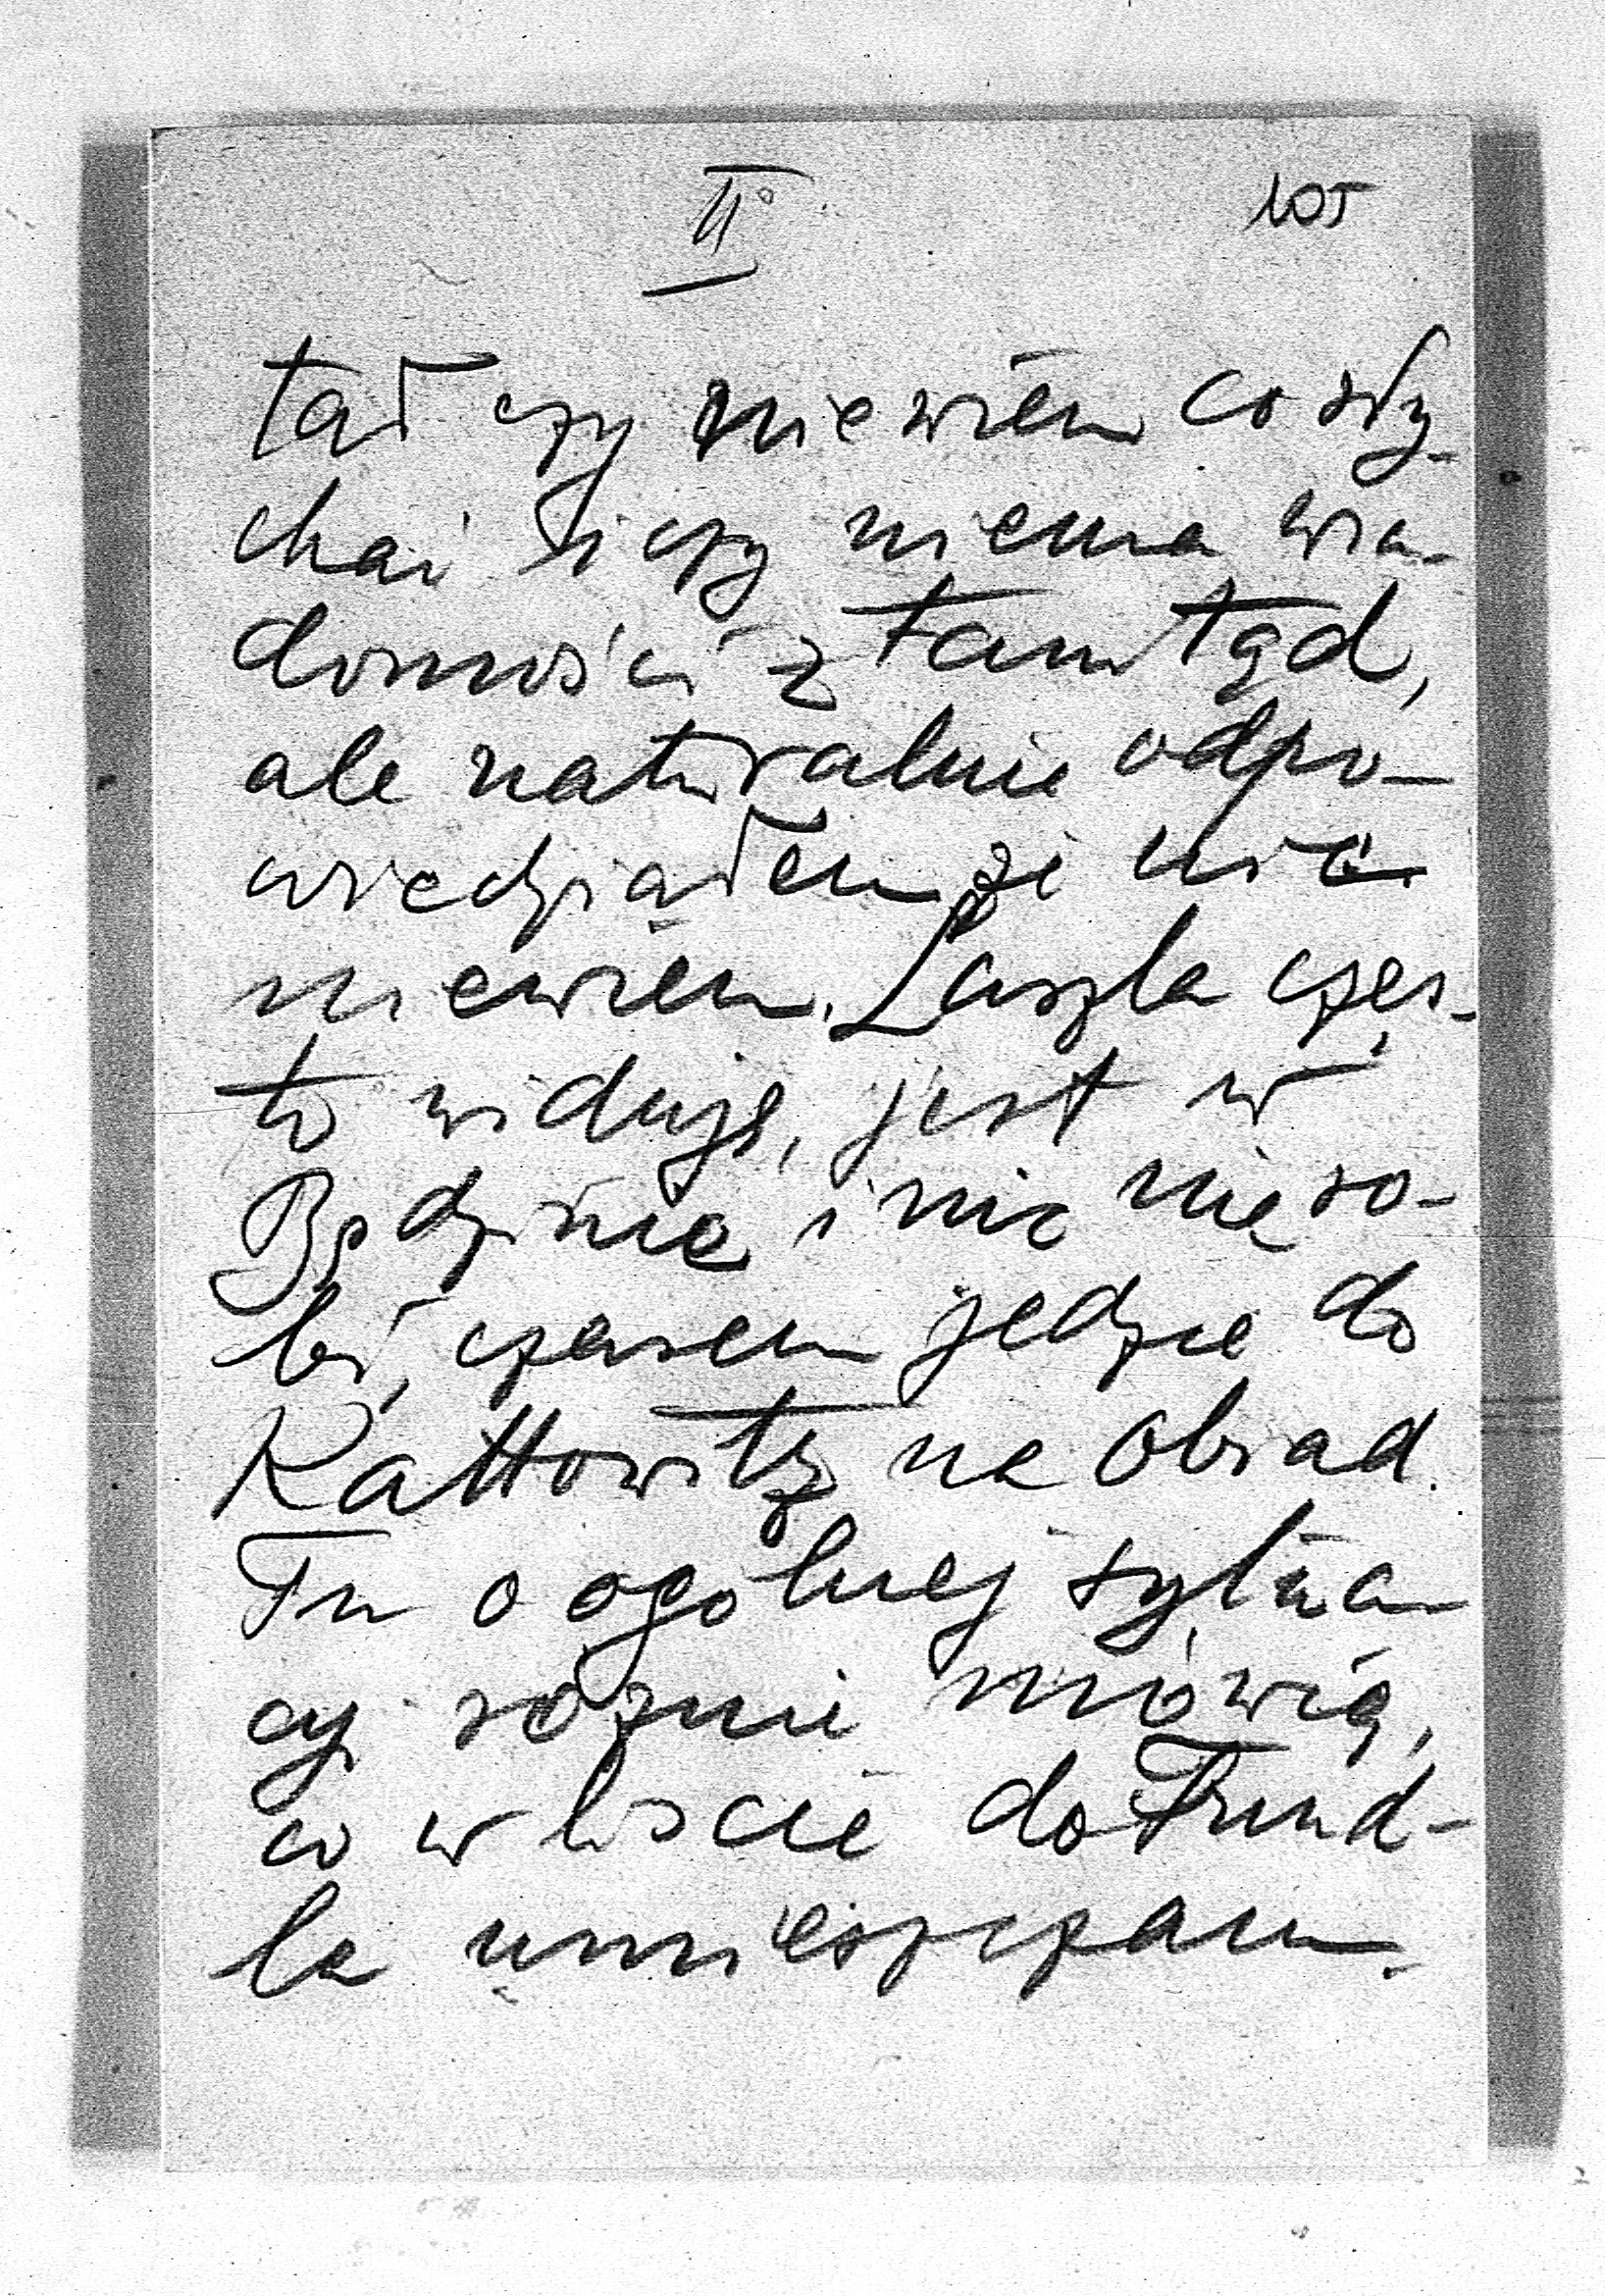 II°
105
tał czy niewiem co sły-
chać i czy niema wia-
domości z tamtąd,
ale naturalnie odpo-
wiedziałem że nic
niewiem. Laszla częs-
to widuję, jest w
Będzinie i nic nie ro-
bi, czasem jedzie do
Kattowitz na obiad.
Tu o ogólnej sytua-
cyi rożnie mówią,
co w liscie do Frund-
la umieszczam.